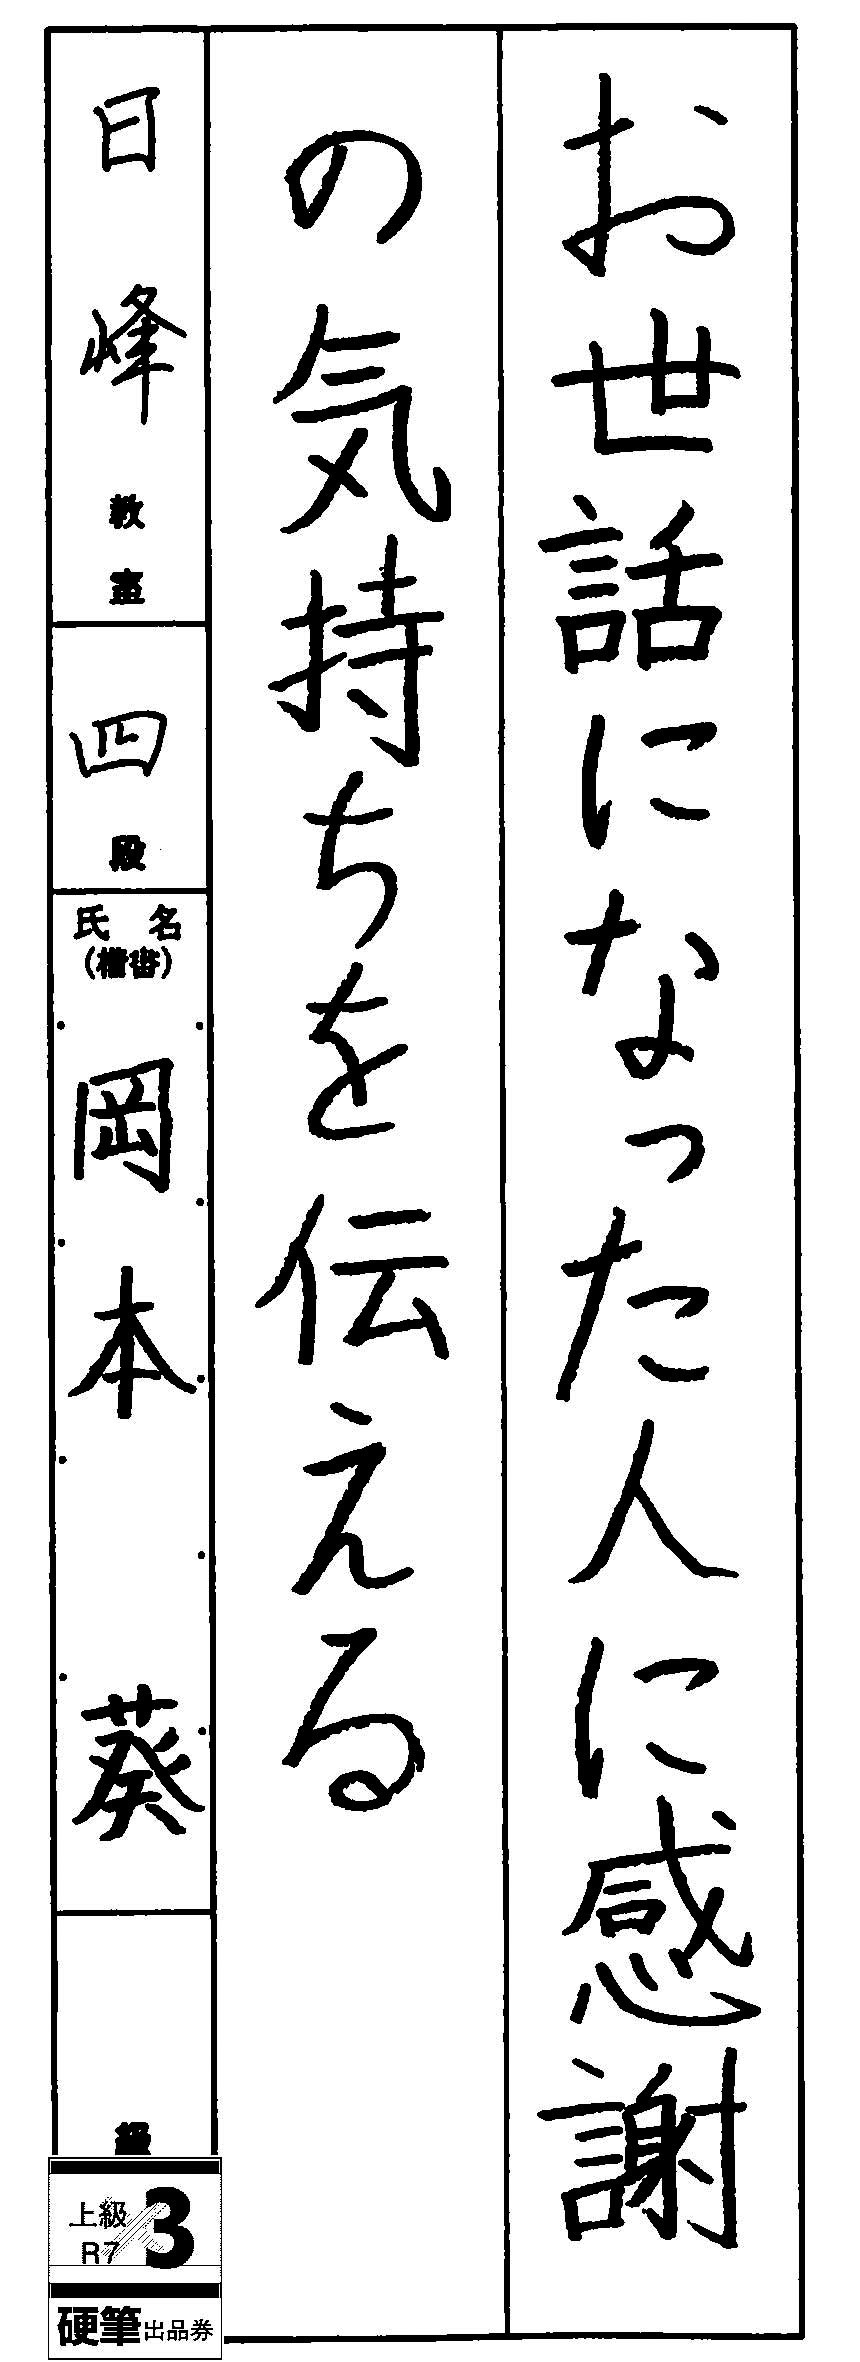 お世話になった人に感謝
の気持ちを伝える
日峰教室
四段
氏名
(楷書)
岡本葵
級
上級
R7
3
硬筆出品券